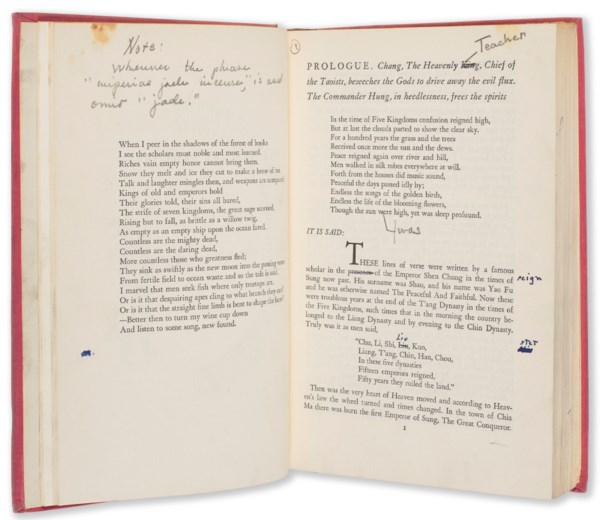 Note:
Whenever the phrase
"imperial jade incense," is used
omit "jade."
When I peer in the shadows of the forest of books
I see the scholars most noble and most learned.
Riches vain empty honor cannot bring them.
Snow they melt and ice they cut to make a brew of tea.
Talk and laughter mingles then, and weapons are compared
Kings of old and emperors hold
Their glories told, their sins all bared,
The strife of seven kingdoms, the great sage scored.
Rising but to fall, as brittle as a willow twig,
As empty as an empty ship upon the ocean fared.
Countless are the mighty dead,
Countless are the daring dead,
More countless those who greatness fled;
They sink as swiftly as the new moon into the passing
From fertile field to ocean waste and so the tale is said.
I marvel that men seek fish where only treetops are.
Or is it that despairing apes cling to what branch they can?
Or is it that the straight fine limb is best to shape the bow?
—Better then to turn my wine cup down
And listen to some song, new found.
Teacher
PROLOGUE. Chang, The Heavenly King, Chief of
the Taoists, beseeches the Gods to drive away the evil flux.
The Commander Hung, in heedlessness, frees the spirits
In the time of Five Kingdoms confusion reigned high,
But at last the clouds parted to show the clear sky.
For a hundred years the grass and the trees
Received once more the sun and the dews.
Peace reigned again over river and hill,
Men walked in silk robes everywhere at will.
Forth from the houses did music sound,
Peaceful the days passed idly by;
Endless the songs of the golden birds,
Endless the life of the blooming flowers,
Though the sun were high, yet was sleep profound.
was
IT IS SAID:
THESE lines of verse were written by a famous
scholar in the presence of the Emperor Shen Chung in the times of reign
Sung now past. His surname was Shao, and his name was Yao Fu
and he was otherwise named The Peaceful And Faithful. Now these
were troublous years at the end of the T'ang Dynasty in the times of
the Five Kingdoms, such times that in the morning the country be-
longed to the Liang Dynasty and by evening to the Chin Dynasty.
Truly was it as men said,
Liu
"Chu, Li, Shi, Liu, Kuo,
Liang, T'ang, Chin, Han, Chou,
In these five dynasties
Fifteen emperors reigned,
Fifty years they ruled the land."
Then was the very heart of Heaven moved and according to Heav-
en's law the wheel turned and times changed. In the town of Chia
Ma there was born the first Emperor of Sung, The Great Conqueror.
1